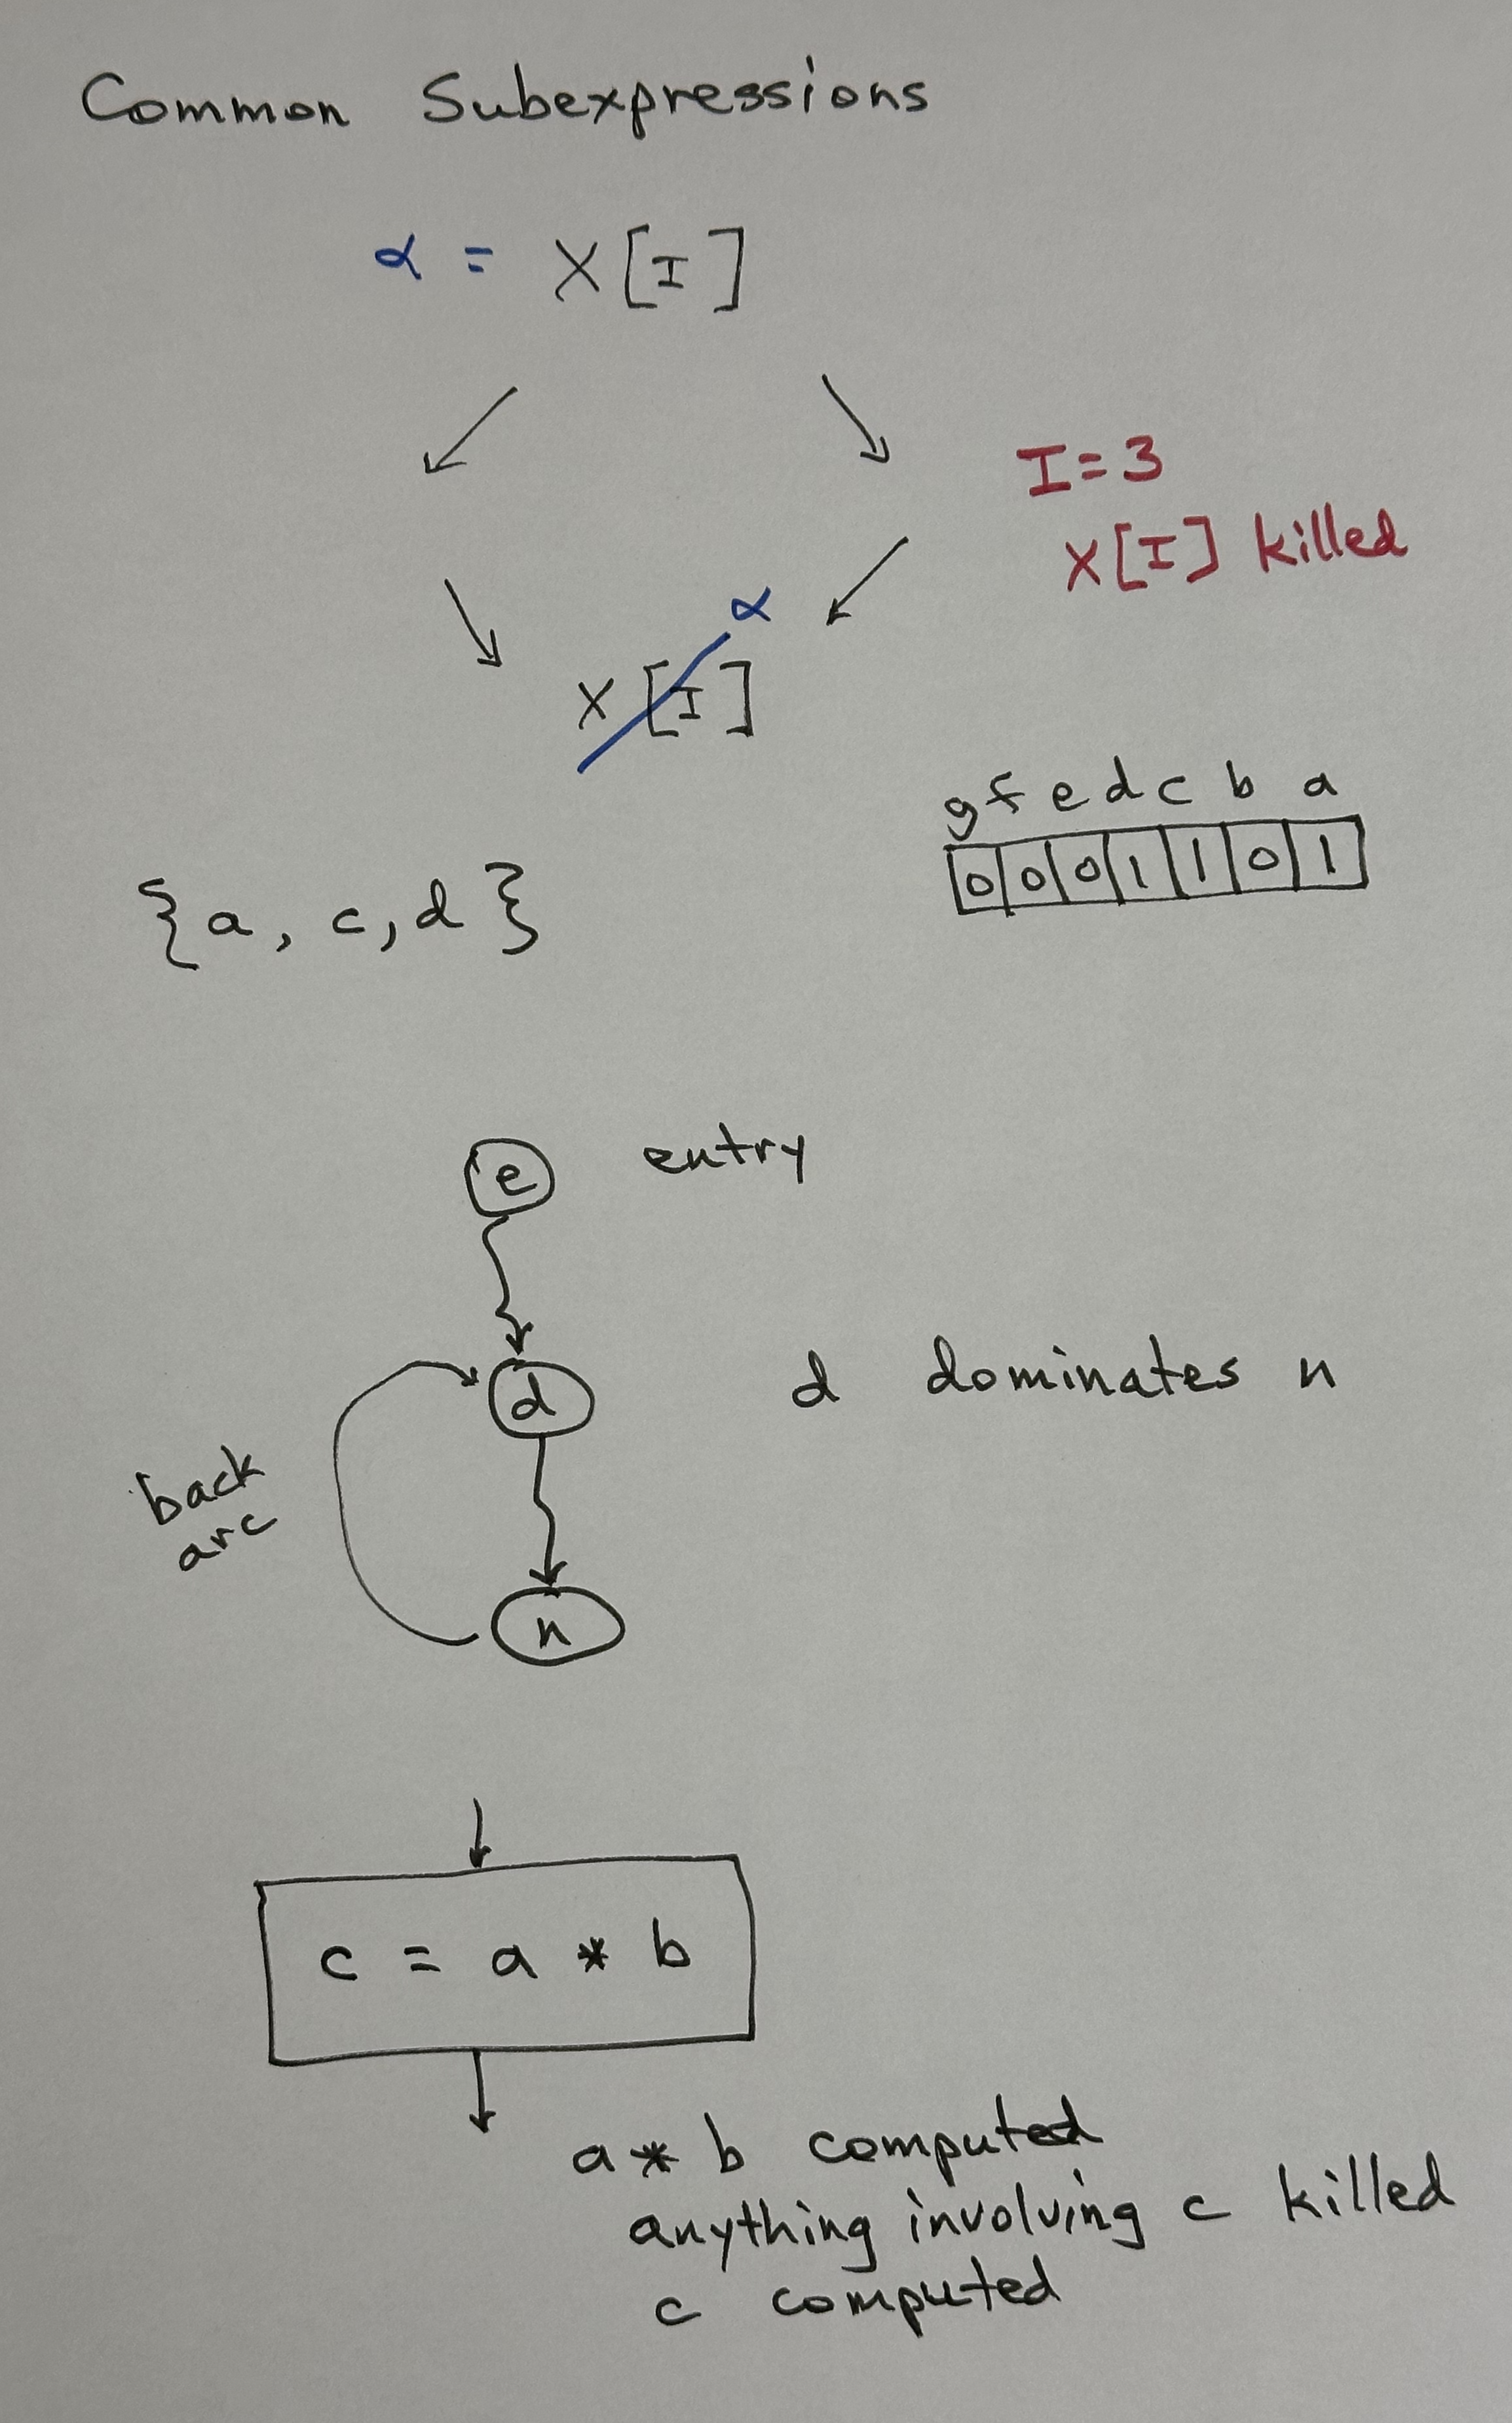 Common Subexpressions
α = X[I]
I=3
X[I] killed
α
X[I]
g f e d c b a
0 0 0 1 1 0 1
{a, c, d}
e entry
d d dominates n
back
arc
n
c = a * b
a * b computed
anything involving c killed
c computed